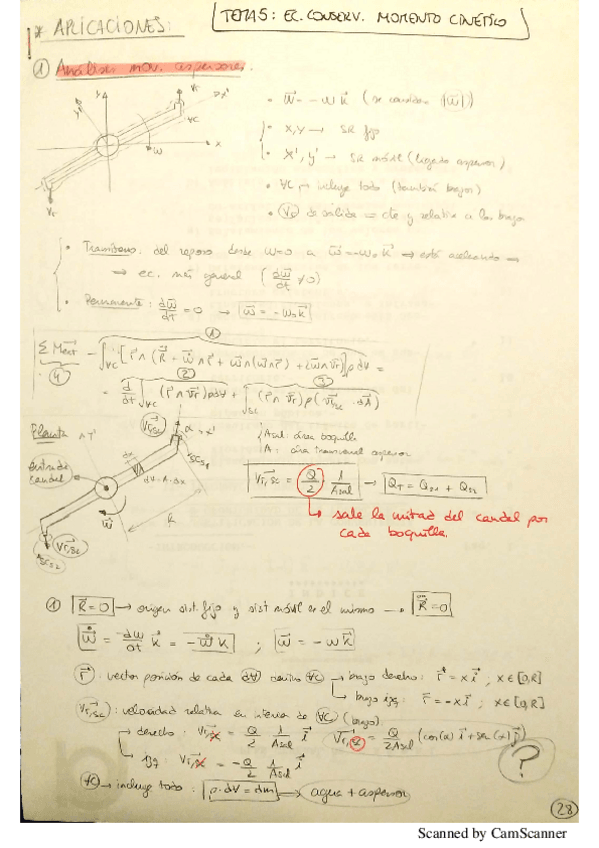 * APLICACIONES:
TEMA 5: EC. CONSERV. MOMENTO CINÉTICO
① Análisis mov. aspersores.
• w⃗ = -w k⃗ (se considera |w⃗|)
• x,y → SR fijo
• x', y' → SR móvil (ligado aspersor)
• ∀C → incluye todo (también brazos)
• Vr de salida = cte y relativa a los brazos
• Transitorio: del reposo desde w=0 a w⃗ = -w₀ k⃗ ⇒ está acelerando ⇒
⇒ ec. más general (dw⃗/dt ≠ 0)
• Permanente: dw⃗/dt = 0 → w⃗ = -w₀ k⃗
①
Σ M⃗ext - ∫∀C [r⃗ ∧ (R̈ + ẇ ∧ r⃗ + w⃗ ∧ (w⃗ ∧ r⃗) + 2w⃗ ∧ v⃗r)] ρ d∀ =
④ ② ③
= d/dt ∫∀C (r⃗ ∧ v⃗r) ρ d∀ + ∫SC (r⃗ ∧ v⃗r) ρ (v⃗r,sc · dA⃗)
Planta
Vr,sc
α
x'
SCs1
entrada caudal
dx
d∀ = A·dx
w⃗
R
Vr,sc
SCs2
Asal: área boquilla
A: área transversal aspersor
Vr,sc = Q/2 1/Asal → QT = Qs1 + Qs2
→ sale la mitad del caudal por
cada boquilla.
① R⃗ = 0 → origen sist. fijo y sist móvil en el mismo → R̈ = 0
ẇ = -dw/dt k⃗ = -ẇ k⃗ ; w⃗ = -w k⃗
r⃗: vector posición de cada d∀ dentro ∀C → brazo derecho: r⃗ = x i⃗ ; x ∈ [0,R]
→ brazo izq: r⃗ = -x i⃗ ; x ∈ [0,R]
Vr,sc: velocidad relativa en interior de ∀C (brazo):
→ derecho: Vr = Q/2 1/Asal i⃗ Vr,sc = Q/2Asal (cos(α) i⃗ + sen(α) j⃗)
→ izq: Vr = -Q/2 1/Asal i⃗
?
∀C → incluye todo: ρ·d∀ = dm → agua + aspersor
28
Scanned by CamScanner